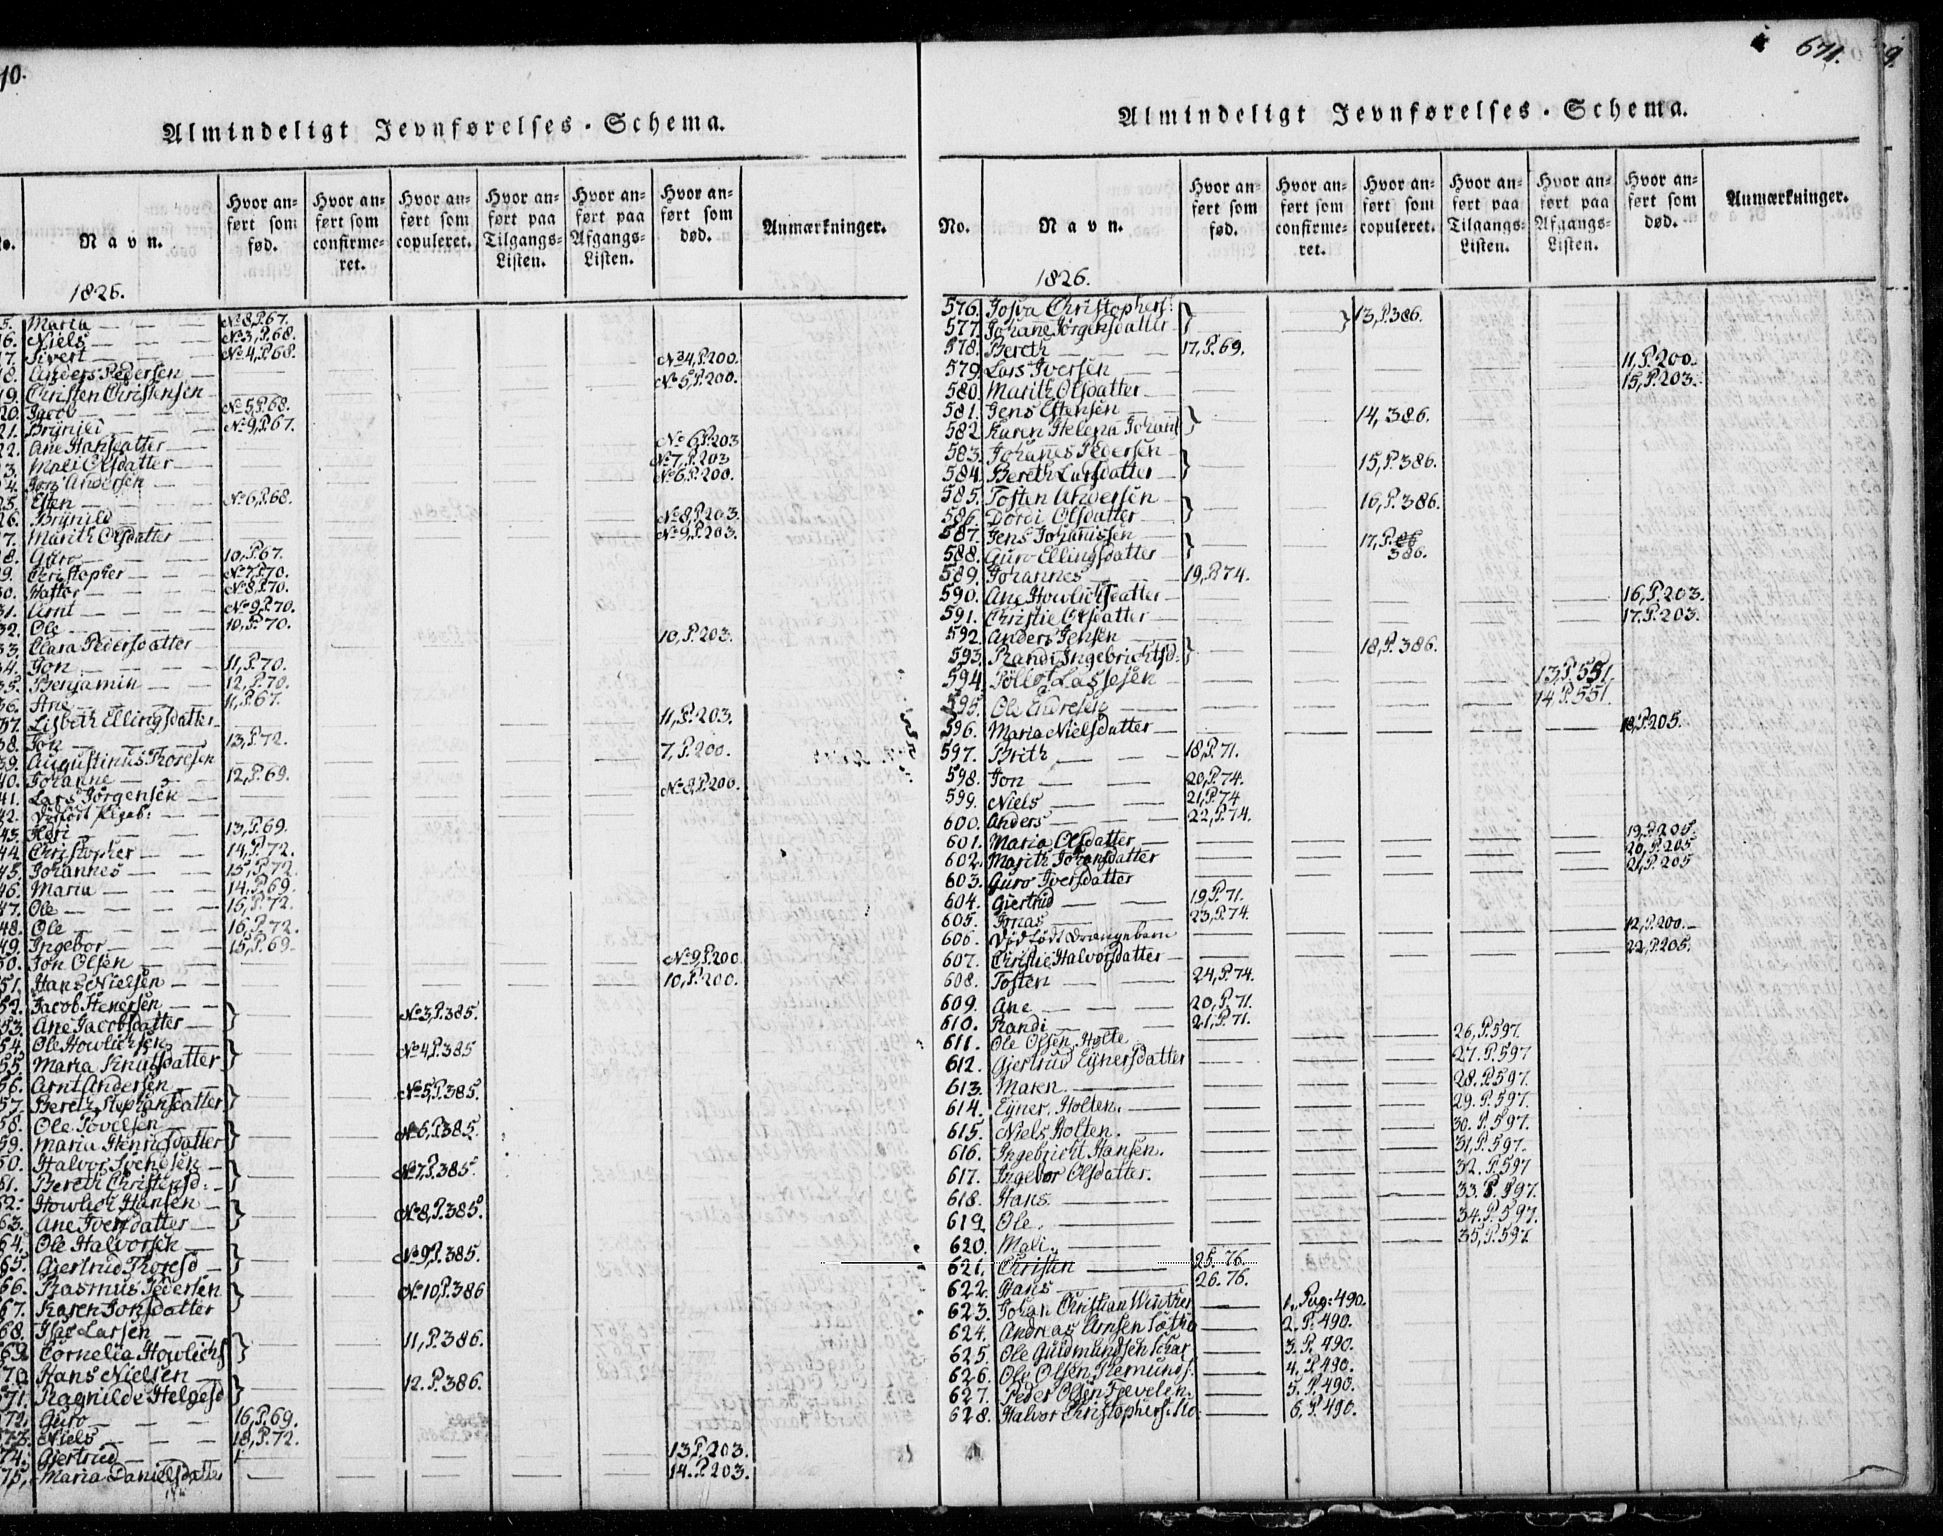 10.
Almindeligt Jevnførelses-Schema.
No. Navn. Hvor anført som fød. Hvor anført som confirmeret. Hvor anført som copuleret. Hvor anført paa Tilgangs-Listen. Hvor anført paa Afgangs-Listen. Hvor anført som død. Anmærkninger.
1826.
15. Maria No 8, P. 67.
16. Niels No 3, P. 68.
17. Sivert No 4, P. 68.
18. Anders Pedersen No 4, P. 200.
19. Christen Christensen No 5, P. 200.
20. Jacob No 5, P. 68.
21. Brÿnild No 9, P. 67.
22. Ane Hansdatter No 6, P. 203
23. Mali Olsdatter No 7, P. 203
24. Andersen No 6, P. 200.
25. Esten No 6, P. 68.
26. Brÿnild No 8, P. 203.
27. Marith Olsdatter No 9, P. 203.
28. Guro 10, P. 67.
29. Christopher No 7, P. 70.
30. Haftor No 8, P. 70.
31. Arnt No 9, P. 70.
32. Ole 10, P. 70.
33. Clara Pedersdatter 10, P. 203.
34. Jon 11, P. 70.
35. Benjamin 12, P. 70.
36. Ane 11, P. 67.
37. Lisbeth Ellingsdatter 11, P. 203.
38. Jon 13, P. 72.
39. Augustinus Thoresen 7, P. 200.
40. Johanne 12, P. 69.
41. Lars Jørgensen No 8, P. 200.
42. Dødfødt Pigeb:
43. Kari 13, P. 69.
44. Christopher 14, P. 72.
45. Johannes 15, P. 72.
46. Maria 14, P. 69.
47. Ole 16, P. 72.
48. Ole 16, P. 72.
49. Ingebor 15, P. 69.
50. Jon Olsen No 9, P. 200
51. Hans Nielsen 10, P. 200.
52. Jacob Stenersen
53. Ane Jacobsdatter } No 3, P. 385.
54. Ole Howlichsen
55. Maria Knudsdatter } No 4, P. 385
56. Arnt Andersen
57. Bereth Stephansdatter } No 5, P. 385.
58. Ole Povelsen
59. Maria Henrichsdatter } No 6, P. 385.
60. Halvor Svendsen
61. Bereth Christensd: } No 7, P. 385.
62. Howlich Hansen
63. Ane Iversdatter } No 8, P. 385.
64. Ole Halvorsen
65. Gjertrud Thoresd } No 9, P. 385.
66. Rasmus Pedersen
67. Karen Jonsdatter } No 10, P. 386
68. Isac Larsen
69. Cornelia Howlichs } 11, P. 386.
70. Hans Nielsen
571. Ragnilde Helgesd } 12. P. 386.
72. Guro 16, P. 69.
573. Niels 18, P. 72.
74. Gjertrud 13 P. 203.
75. Maria Danielsdatter 14. P. 203.
671.
9.
Almindeligt Jevnførelses-Schema.
No. Navn. Hvor anført som fød. Hvor anført som confirmeret. Hvor anført som copuleret. Hvor anført paa Tilgangs-Listen. Hvor anført paa Afgangs-Listen. Hvor anført som død. Anmærkninger.
1826.
576. Josva Christophers:
577. Johane Jørgensdatter } 13, P. 386.
578. Bereth 17, P. 69.
579. Lars Iversen 11, P. 200.
580. Marith Olsdatter 15, P. 203.
581. Jens Estensen
582. Karen Helena Johans } 14, 386.
583. Johannes Pedersen
584. Bereth Larsdatter } 15, P. 386.
585. Tosten Andersen
586. Dordi Olsdatter } 16, P. 386.
587. Jens Johannissen
588. Guro Ellingsdatter } 17, P. 386.
589. Johannes 19, P. 74.
590. Ane Howlichsdatter 16, P. 203.
591. Christie Olsdatter 17. P. 203.
592. Anders Jensen
593. Randi Ingebrichtsd: } 18, P. 386.
594. Lassesen 13, P. 551.
595. Ole Endresen 14, P. 551.
596. Maria Nielsdatter 18, P. 205.
597. Brith 18, P. 71.
598. Jon 20, P. 74.
599. Niels 21, P. 74
600. Anders 22, P. 74.
601. Maria Olsdatter 19, P. 205.
602. Marith Johansdatter 20, P. 205
603. Guro Iversdatter 21, P. 205
604. Giertrud 19, P. 71.
605. Jonas 23, P. 74.
606. Dødfødt Drængebarn 12, P. 200.
607. Christie Halvorsdatter 22, P. 205.
608. Tosten 24, P. 74.
609. Ane 20, P. 71.
610. Randi 21, P. 71.
611. Ole Olsen Holte 26, P. 597.
612. Gjertrud Ejnersdatter 27. P. 597
613. Maren 28. P. 597.
614. Ejner. Holten. 29. P. 597.
615. Niels Holten. 30. P. 597.
616. Ingebricht Hansen. 31, P. 597.
617. Ingebor Olsdatter. 32. P. 597
618. Hans 33. P. 597.
619. Ole. 34. P. 597.
620. Mali. 35, P. 597.
621. Christen 25. 76.
622. Hans 26. 76.
623. Johan Christian Winther 1. Pag: 490.
624. Andreas Arnsen 2. P. 490.
625. Ole Gudmundsen 3. P. 490.
626. Ole Olsen 4. P. 490.
627. Peder Olsen 5. P. 490.
628. Halvor Christophers: 6. P. 490.